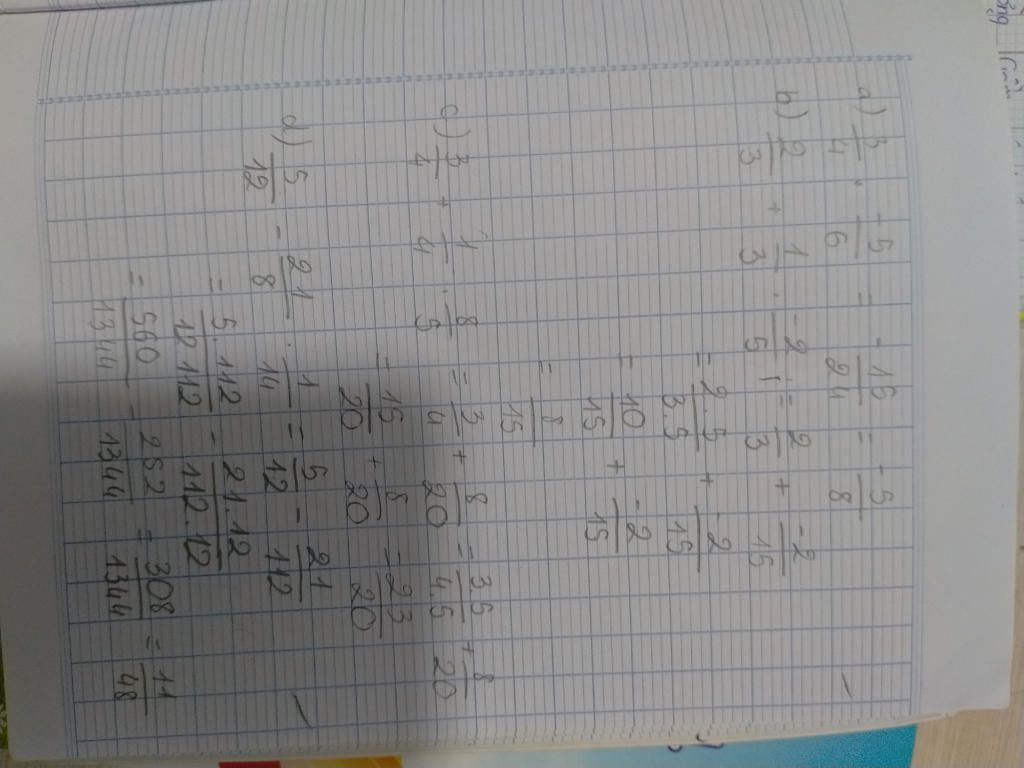 a) 3/4 . -5/6 = -15/24 = -5/8
b) 2/3 + 1/3 . -2/5 = 2/3 + -2/15
= 2.5/3.5 + -2/15
= 10/15 + -2/15
= 8/15
c) 3/4 + 1/4 . 8/5 = 3/4 + 8/20 = 3.5/4.5 + 8/20
= 15/20 + 8/20 = 23/20
d) 5/12 - 21/8 . 1/14 = 5/12 - 21/112
= 5.112/12.112 - 21.12/112.12
= 560/1344 - 252/1344 = 308/1344 = 11/48